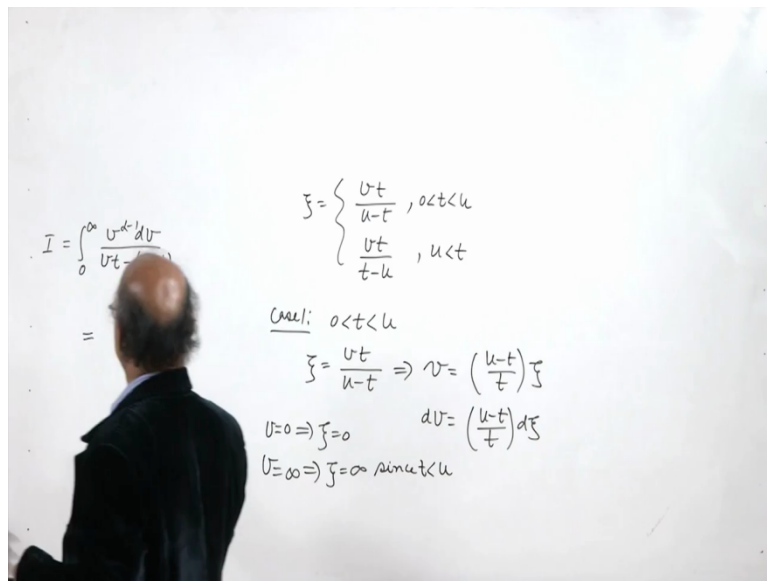 I = ∫₀^∞ v^{α-1}dv / vt-
=
ξ = { vt/(u-t) , 0<t<u
vt/(t-u) , u<t
Case1: 0<t<u
ξ = vt/(u-t) ⇒ v = ((u-t)/t) ξ
dv = ((u-t)/t) dξ
v=0 ⇒ ξ=0
v=∞ ⇒ ξ=∞ since t<u